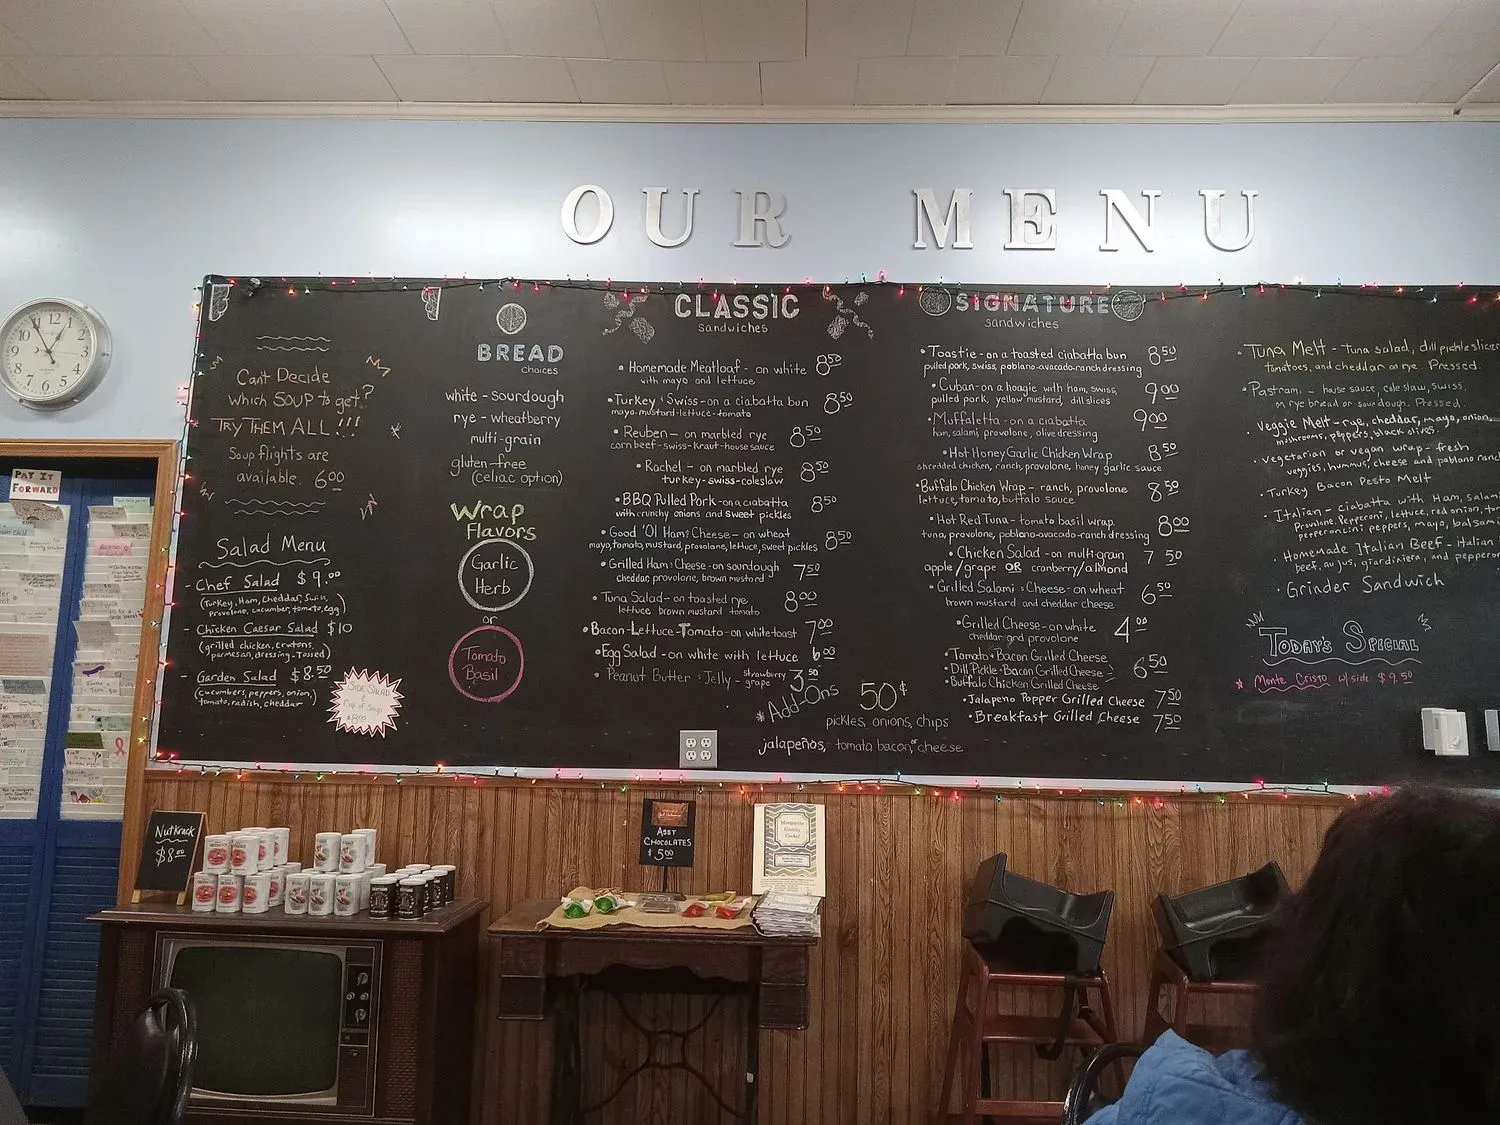 OUR MENU
Can't Decide
which SOUP to get?
TRY THEM ALL!!!
Soup flights are
available. 6.00
Salad Menu
- Chef Salad $9.00
(Turkey, Ham, Cheddar, Swiss,
Provolone, cucumber, tomato, egg)
- Chicken Caesar Salad $10
(grilled chicken, crutons,
parmesan, dressing - Tossed)
- Garden Salad $8.50
(cucumbers, peppers, onion,
tomato, radish, cheddar)
SIDE SALAD
Cup of Soup
$8.00
BREAD
choices
white - sourdough
rye - wheatberry
multi-grain
gluten-free
(celiac option)
Wrap
Flavors
Garlic
Herb
or
Tomato
Basil
CLASSIC
sandwiches
• Homemade Meatloaf - on white 8.50
with mayo and lettuce
• Turkey & Swiss - on a ciabatta bun 8.50
mayo-mustard-lettuce-tomato
• Reuben - on marbled rye 8.50
corn beef-swiss-kraut-house sauce
• Rachel - on marbled rye 8.50
turkey-swiss-coleslaw
• BBQ Pulled Pork - on a ciabatta 8.50
with crunchy onions and sweet pickles
• Good 'Ol Ham & Cheese - on wheat 8.50
mayo, tomato, mustard, provolone, lettuce, sweet pickles
• Grilled Ham & Cheese - on sourdough 7.50
cheddar, provolone, brown mustard
• Tuna Salad - on toasted rye 8.00
lettuce brown mustard tomato
• Bacon-Lettuce-Tomato - on white toast 7.00
• Egg Salad - on white with lettuce 6.00
• Peanut Butter & Jelly - strawberry 3.50
grape
* Add-Ons 50¢
pickles, onions, chips
jalapeños, tomato bacon, or cheese.
SIGNATURE
sandwiches
• Toastie - on a toasted ciabatta bun 8.50
pulled pork, swiss, poblano-avacado-ranch dressing
• Cuban - on a hoagie with ham, swiss, 9.00
pulled pork, yellow mustard, dill slices
• Muffaletta - on a ciabatta 9.00
ham, salami, provolone, olive dressing
• Hot Honey Garlic Chicken Wrap 8.50
shredded chicken, ranch, provolone, honey garlic sauce
• Buffalo Chicken Wrap - ranch, provolone 8.50
lettuce, tomato, buffalo sauce
• Hot Red Tuna - tomato basil wrap, 8.00
tuna, provolone, poblano-avocado-ranch dressing
• Chicken Salad - on multi-grain 7.50
apple/grape OR cranberry/almond
• Grilled Salami & Cheese - on wheat 6.50
brown mustard and cheddar cheese
• Grilled Cheese - on white 4.00
cheddar and provolone
• Tomato & Bacon Grilled Cheese
• Dill Pickle & Bacon Grilled Cheese 6.50
• Buffalo Chicken Grilled Cheese
• Jalapeno Popper Grilled Cheese 7.50
• Breakfast Grilled Cheese 7.50
• Tuna Melt - Tuna salad, dill pickle slices
tomatoes, and cheddar on rye. Pressed.
• Pastrami - house sauce, cole slaw, swiss,
on rye bread or sourdough. Pressed.
• Veggie Melt - rye, cheddar, mayo, onion
mushrooms, peppers, black olives.
• vegetarian or vegan wrap - fresh
veggies, hummus, cheese and poblano ranch
• Turkey Bacon Pesto Melt
• Italian - ciabatta with Ham, Salami
Provolone, Pepperoni, lettuce, red onion,
pepperoncini peppers, mayo,
• Homemade Italian Beef - Italian
beef, au jus, giardiniera, and
• Grinder Sandwich
TODAY'S SPECIAL
* Monte Cristo w/side $9.50
PAY IT
FORWARD
NutKrack
$8.00
Asst
CHOCOLATES
$5.00
Marquette
County